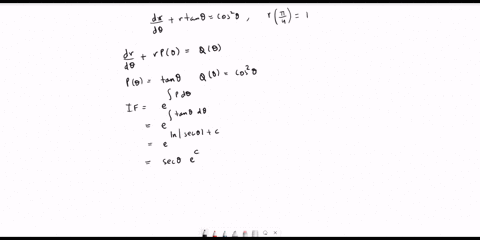 dr/dθ + r tanθ = cos²θ , r(π/4) = 1
dr/dθ + r P(θ) = Q(θ)
P(θ) = tanθ Q(θ) = cos²θ
IF = e^∫P dθ
= e^∫tanθ dθ
= e^ln|secθ| + c
= secθ e^c